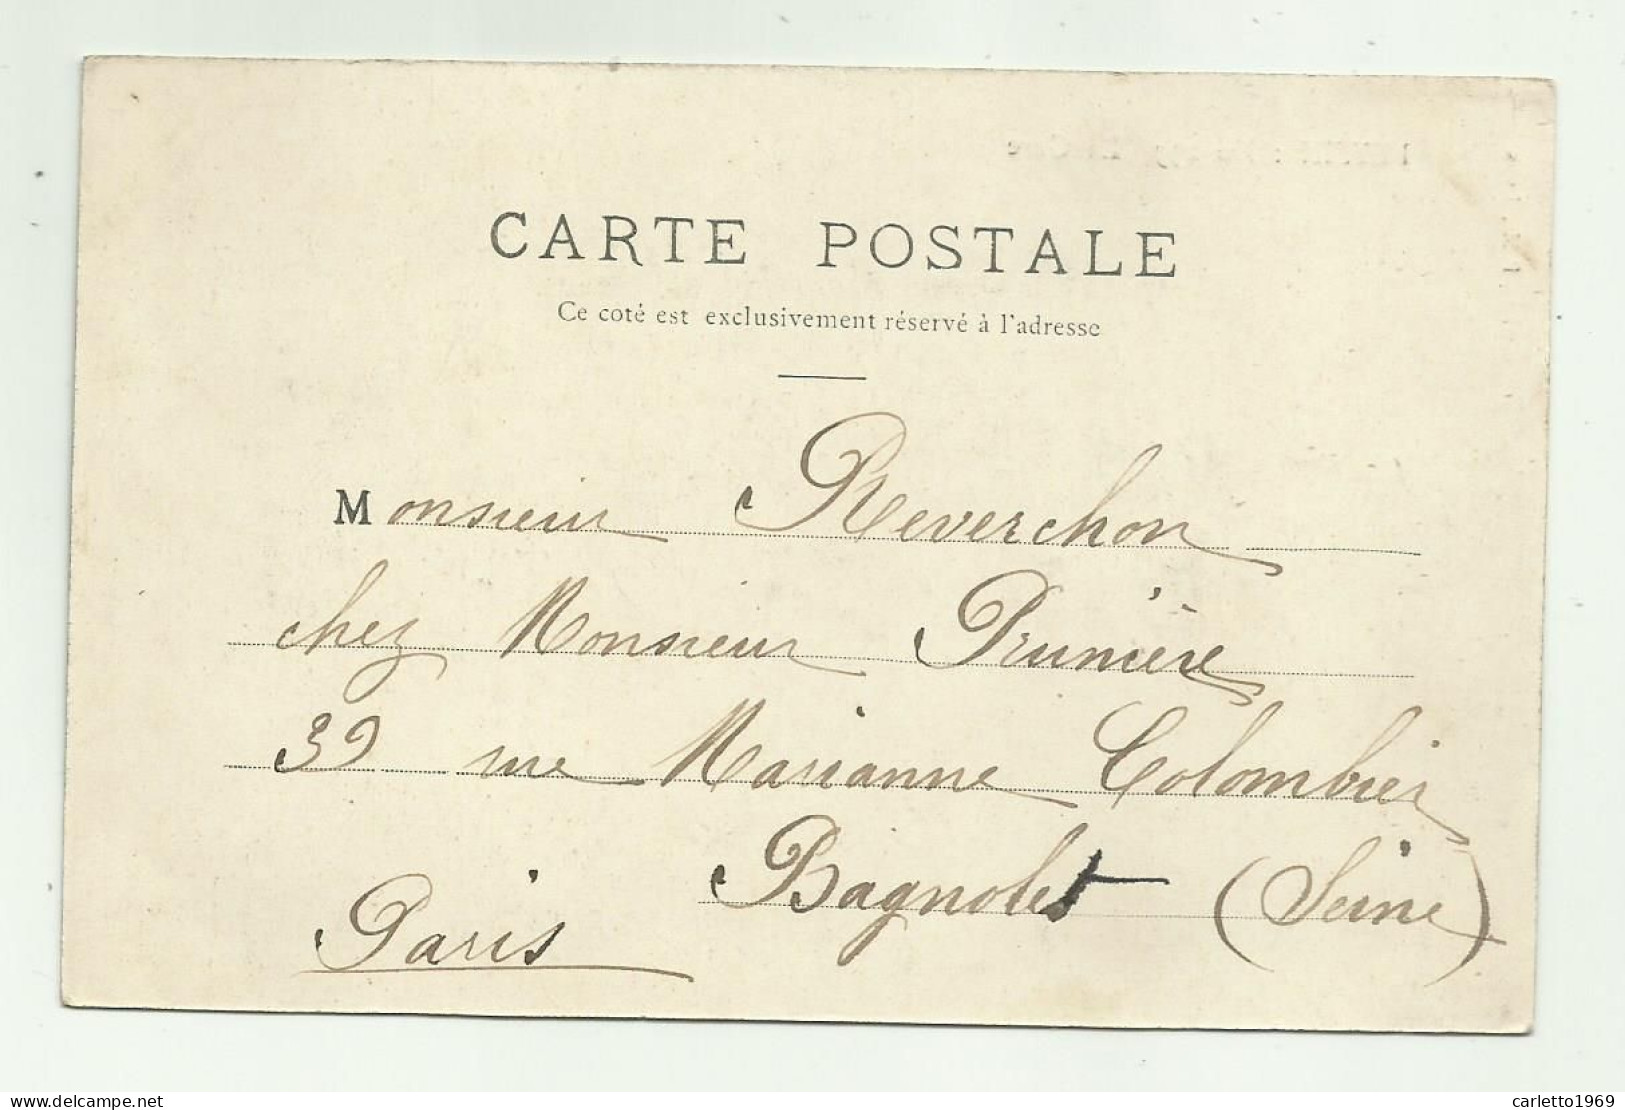 CARTE POSTALE
Ce coté est exclusivement réservé à l'adresse
Monsieur Reverchon
chez Monsieur Prunière
39 rue Marianne Colombier
Bagnolet (Seine)
Paris
delcampe.net
carletto1969